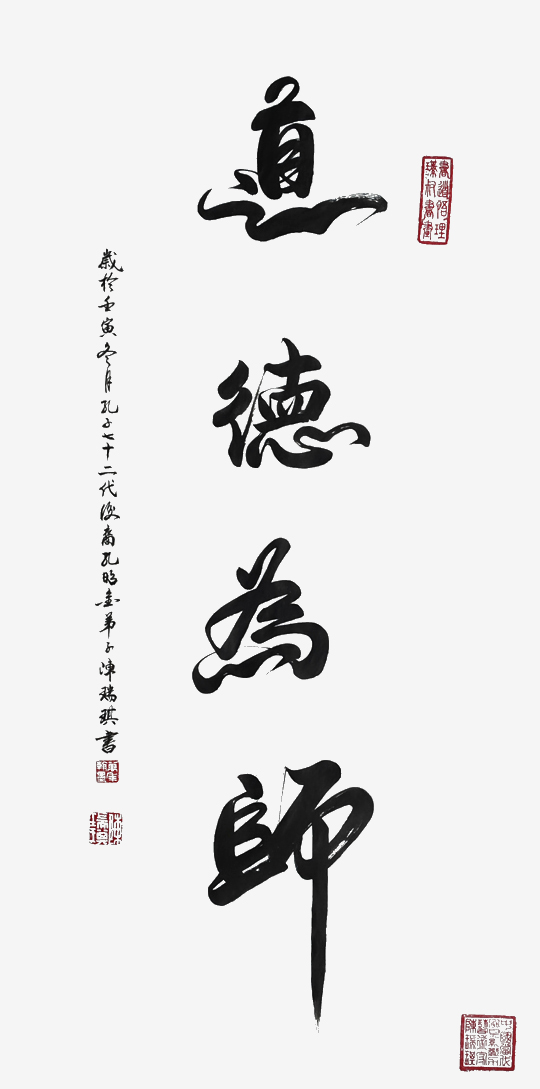 道德為師
歲於壬寅冬月孔子七十二代後裔孔昭金弟子陳瑞琪書
書道悟理